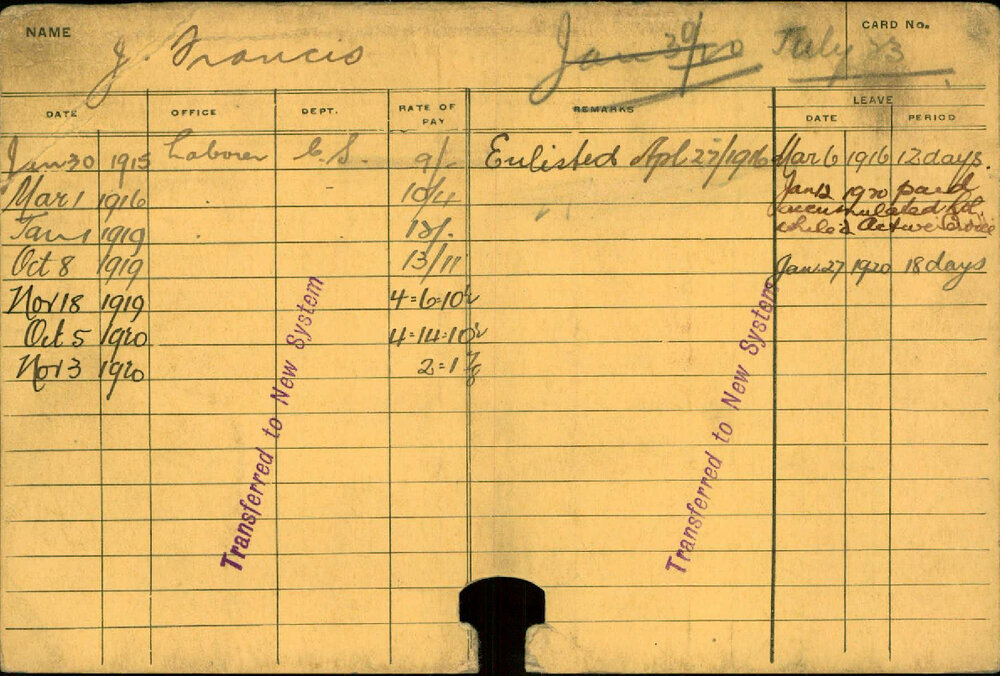 NAME J. Francis Jan 30/20 July 23 CARD No.
DATE OFFICE DEPT. RATE OF PAY REMARKS LEAVE
DATE PERIOD
Jan 30 1915 Laborer C.S. 9/- Enlisted Apl 27/1916 Mar 6 1916 12 days.
Mar 1 1916 10/4 Jan 12 1920 paid
accumulated
Jan 1 1919 12/- while on Active Service
Oct 8 1919 13/11 Jan 27 1920 18 days
Nov 18 1919 4=6=10½
Oct 5 1920 4=14=10½
Nov 3 1920 2=1⅞
Transferred to New System
Transferred to New System